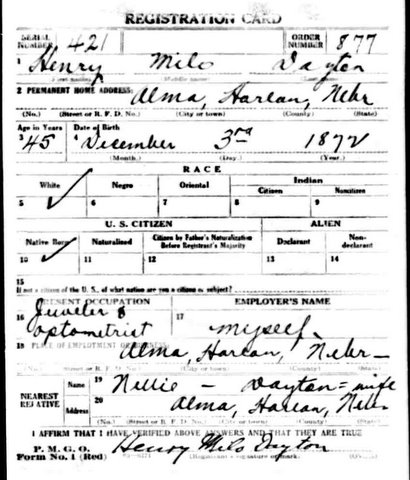 REGISTRATION CARD
SERIAL NUMBER 421 ORDER NUMBER 877
1 Henry Milo Dayton
(First name) (Middle name) (Last name)
2 PERMANENT HOME ADDRESS: Alma, Harlan, Nebr
(No.) (Street or R. F. D. No.) (City or town) (County) (State)
Age in Years Date of Birth
3 45 4 December 3rd 1872
(Month.) (Day.) (Year.)
RACE
White Negro Oriental Indian
Citizen Noncitizen
5 ✓ 6 7 8 9
U. S. CITIZEN ALIEN
Native Born Naturalized Citizen by Father's Naturalization Before Registrant's Majority Declarant Non-declarant
10 ✓ 11 12 13 14
15
If not a citizen of the U. S., of what nation are you a citizen or subject?
PRESENT OCCUPATION EMPLOYER'S NAME
16 Jeweler & optometrist 17 myself
18 PLACE OF EMPLOYMENT OR BUSINESS: Alma, Harlan, Nebr
(No.) (Street or R. F. D. No.) (City or town) (County) (State)
NEAREST RELATIVE Name 19 Nellie - Dayton = wife
Address 20 Alma, Harlan, Nebr
(No.) (Street or R. F. D. No.) (City or town) (County) (State)
I AFFIRM THAT I HAVE VERIFIED ABOVE ANSWERS AND THAT THEY ARE TRUE
P. M. G. O.
Form No. 1 (Red) Henry Milo Dayton
(Registrant's signature or mark) (OVER)